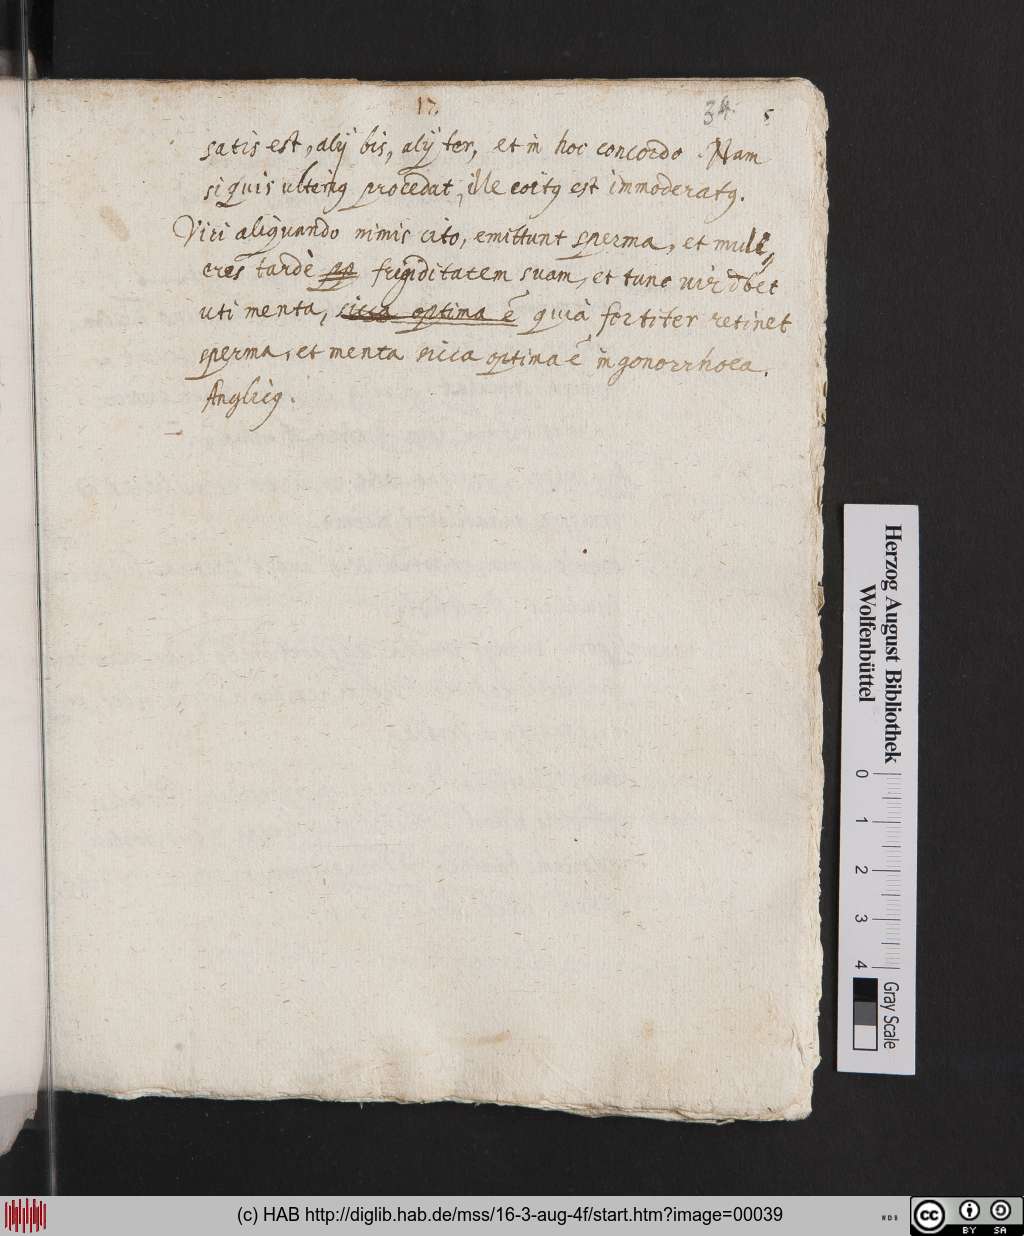 17.
34. 5
satis est, alij bis, alij ter, et in hoc concordo. Nam
si quis ulteriꝰ procedat, ille coitꝰ est immoderatꝰ.
Viri aliquando nimis cito, emittunt sperma, et muli,,
eres tardè pp frigiditatem suam, et tunc vir dbet
uti menta, sicca optima ē quià fortiter retinet
sperma, et menta sicca optima ē in gonorrhoea.
Anglicꝰ.
Herzog August Bibliothek
Wolfenbüttel
0 1 2 3 4
Gray Scale
(c) HAB http://diglib.hab.de/mss/16-3-aug-4f/start.htm?image=00039
WDB
cc BY SA